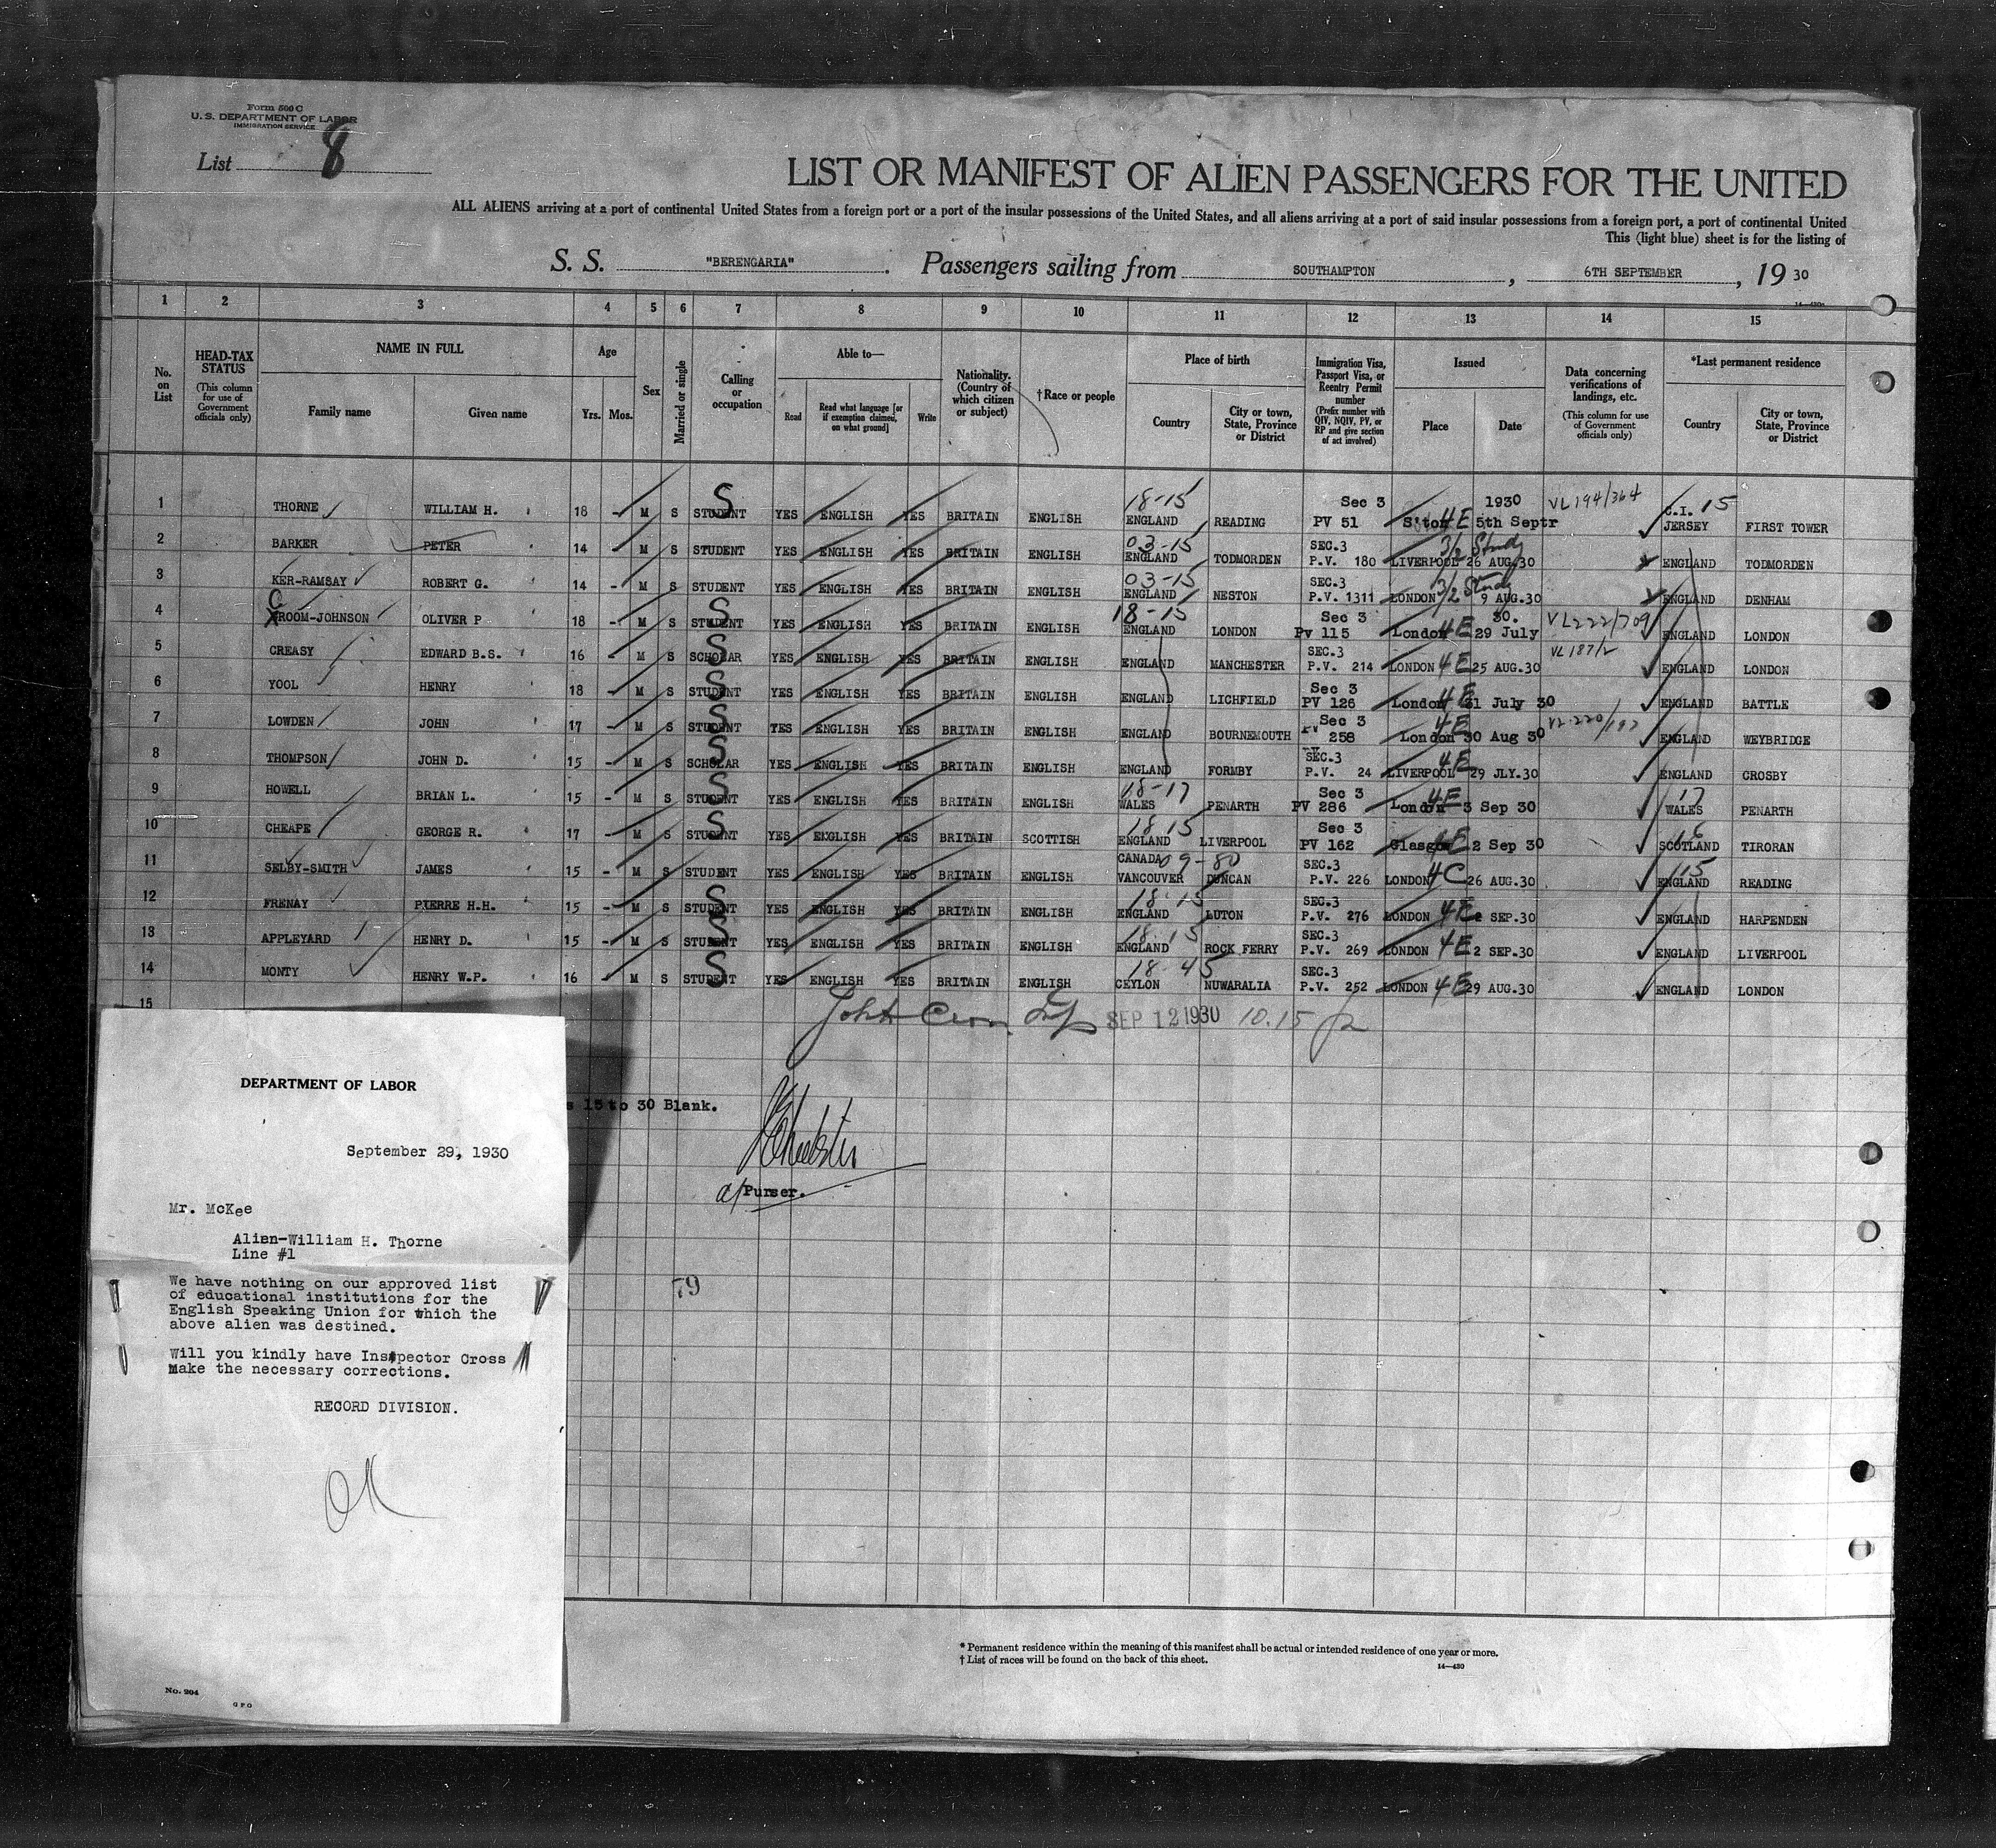 Form 500 C
U. S. DEPARTMENT OF LABOR
IMMIGRATION SERVICE
List 8
LIST OR MANIFEST OF ALIEN PASSENGERS FOR THE UNITED
ALL ALIENS arriving at a port of continental United States from a foreign port or a port of the insular possessions of the United States, and all aliens arriving at a port of said insular possessions from a foreign port, a port of continental United
This (light blue) sheet is for the listing of
S. S. "BERENGARIA". Passengers sailing from SOUTHAMPTON, 6TH SEPTEMBER, 19 30
1 2 3 4 5 6 7 8 9 10 11 12 13 14 15
No. on List
HEAD-TAX STATUS (This column for use of Government officials only)
NAME IN FULL
Family name
Given name
Age
Yrs. Mos.
Sex
Married or single
Calling or occupation
Able to—
Read
Read what language [or if exemption claimed, on what ground]
Write
Nationality. (Country of which citizen or subject)
†Race or people
Place of birth
Country
City or town, State, Province or District
Immigration Visa, Passport Visa, or Reentry Permit number (Prefix number with QIV, NQIV, PV, or RP and give section of act involved)
Issued
Place
Date
Data concerning verifications of landings, etc. (This column for use of Government officials only)
*Last permanent residence
Country
City or town, State, Province or District
1 THORNE WILLIAM H. 18 - M S STUDENT S YES ENGLISH YES BRITAIN ENGLISH 18-15 ENGLAND READING Sec 3 PV 51 S'ton 4E 1930 5th Septr VL194/364 C.I. 15 JERSEY FIRST TOWER
2 BARKER PETER 14 - M S STUDENT YES ENGLISH YES BRITAIN ENGLISH 03-15 ENGLAND TODMORDEN SEC.3 P.V. 180 LIVERPOOL 3/2 Study 26 AUG.30 ENGLAND TODMORDEN
3 KER-RAMSAY ROBERT G. 14 - M S STUDENT YES ENGLISH YES BRITAIN ENGLISH 03-15 ENGLAND NESTON SEC.3 P.V. 1311 LONDON 3/2 Study 9 AUG.30 ENGLAND DENHAM
4 CROOM-JOHNSON OLIVER P 18 - M S STUDENT S YES ENGLISH YES BRITAIN ENGLISH 18-15 ENGLAND LONDON Sec 3 Pv 115 London 4E 30. 29 July VL222/709 ENGLAND LONDON
5 CREASY EDWARD B.S. 16 - M S SCHOLAR S YES ENGLISH YES BRITAIN ENGLISH ENGLAND MANCHESTER SEC.3 P.V. 214 LONDON 4E 25 AUG.30 VL187/2 ENGLAND LONDON
6 YOOL HENRY 18 - M S STUDENT S YES ENGLISH YES BRITAIN ENGLISH ENGLAND LICHFIELD Sec 3 PV 126 London 4E 31 July 30 ENGLAND BATTLE
7 LOWDEN JOHN 17 - M S STUDENT S YES ENGLISH YES BRITAIN ENGLISH ENGLAND BOURNEMOUTH Sec 3 PV 258 London 4E 30 Aug 30 ENGLAND WEYBRIDGE
8 THOMPSON JOHN D. 15 - M S SCHOLAR S YES ENGLISH YES BRITAIN ENGLISH ENGLAND FORMBY SEC.3 P.V. 24 LIVERPOOL 4E 29 JLY.30 ENGLAND CROSBY
9 HOWELL BRIAN L. 15 - M S STUDENT S YES ENGLISH YES BRITAIN ENGLISH 18-17 WALES PENARTH Sec 3 PV 286 London 4E 3 Sep 30 17 WALES PENARTH
10 CHEAPE GEORGE R. 17 - M S STUDENT S YES ENGLISH YES BRITAIN SCOTTISH 18 15 ENGLAND LIVERPOOL Sec 3 PV 162 Glasgow 4E 2 Sep 30 16 SCOTLAND TIRORAN
11 SELBY-SMITH JAMES 15 - M S STUDENT YES ENGLISH YES BRITAIN ENGLISH CANADA 09-80 VANCOUVER DUNCAN SEC.3 P.V. 226 LONDON 4C 26 AUG.30 15 ENGLAND READING
12 FRENAY PIERRE H.H. 15 - M S STUDENT S YES ENGLISH YES BRITAIN ENGLISH 18-15 ENGLAND LUTON SEC.3 P.V. 276 LONDON 4E 2 SEP.30 ENGLAND HARPENDEN
13 APPLEYARD HENRY D. 15 - M S STUDENT S YES ENGLISH YES BRITAIN ENGLISH 18-15 ENGLAND ROCK FERRY SEC.3 P.V. 269 LONDON 4E 2 SEP.30 ENGLAND LIVERPOOL
14 MONTY HENRY W.P. 16 - M S STUDENT S YES ENGLISH YES BRITAIN ENGLISH 18-45 CEYLON NUWARALIA SEC.3 P.V. 252 LONDON 4E 29 AUG.30 ENGLAND LONDON
15
SEP 12 1930 10.15
s 15 to 30 Blank.
a/Purser.
79
DEPARTMENT OF LABOR
September 29, 1930
Mr. McKee
Alien-William H. Thorne
Line #1
We have nothing on our approved list
of educational institutions for the
English Speaking Union for which the
above alien was destined.
Will you kindly have Inspector Cross
make the necessary corrections.
RECORD DIVISION.
OK
No. 204
GPO
* Permanent residence within the meaning of this manifest shall be actual or intended residence of one year or more.
† List of races will be found on the back of this sheet.
14—430